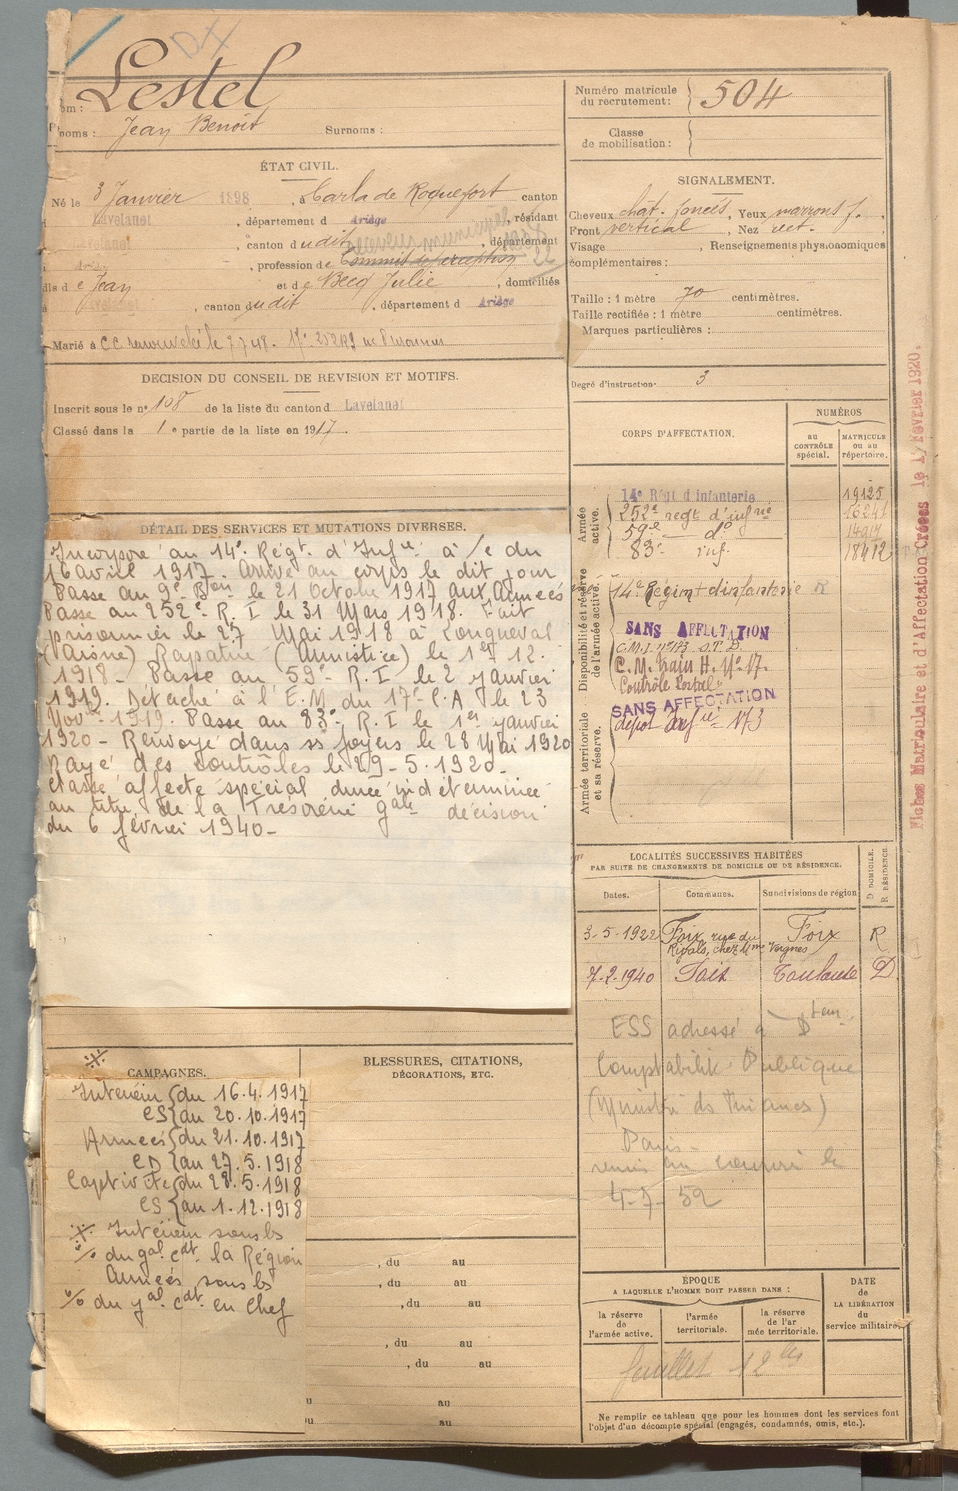 Nom : Lestel
Prénoms : Jean Benoit Surnoms :
Numéro matricule du recrutement : 504
Classe de mobilisation :
ÉTAT CIVIL.
Né le 3 Janvier 1898, à Carla de Roquefort canton
d Lavelanet, département d Ariège, résidant
Lavelanet, canton dudit, département
d Ariège, profession de Commis de perception
receveur municipal
fils de Jean et de Becq Julie, domiciliés
à Lavelanet, canton dudit, département d Ariège
Marié à
SIGNALEMENT.
Cheveux chât. foncés, Yeux marrons f.
Front vertical, Nez rect.
Visage , Renseignements physionomiques
complémentaires :
Taille : 1 mètre 70 centimètres.
Taille rectifiée : 1 mètre centimètres.
Marques particulières :
Degré d'instruction 3
DECISION DU CONSEIL DE REVISION ET MOTIFS.
Inscrit sous le n° 108 de la liste du canton d Lavelanet
Classé dans la 1e partie de la liste en 1917.
CORPS D'AFFECTATION.
NUMÉROS
au CONTRÔLE spécial.
MATRICULE ou au répertoire.
Armée active.
14e Régt d'infanterie 19125
252e regt d'infrie 16241
59e — do
83e inf. 18412
Disponibilité et réserve de l'armée active.
14e Régimt d'infanterie
SANS AFFECTATION
C.M. Train H. No 17.
Contrôle Postal
SANS AFFECTATION
Armée territoriale et sa réserve.
dépot Infie 173
Fiches Matriculaire et d'Affectation Créées le 17 Février 1920.
DÉTAIL DES SERVICES ET MUTATIONS DIVERSES.
Incorporé au 14e Régt. d'Infie à /c du
16 avril 1917. Arrivé au corps le dit jour
Passe au 9e Bon le 21 Octobre 1917 aux Armées
Passe au 252e R.I le 31 Mars 1918. Fait
prisonnier le 27 Mai 1918 à Longueval
(Aisne) Rapatrié (Armistice) le 1er 12.
1918 - Passe au 59e R.I le 2 janvier
1919. Détaché à l'E.M du 17e C.A le 23
Nov. 1919. Passe au 83e R.I le 1er janvier
1920 - Renvoyé dans ss foyers le 28 Mai 1920
Rayé des contrôles le 29-5.1920-
Classé affecté spécial durée indéterminée
au titre de la Trésorerie gale décision
du 6 février 1940-
LOCALITÉS SUCCESSIVES HABITÉES
PAR SUITE DE CHANGEMENTS DE DOMICILE OU DE RÉSIDENCE.
Dates. Communes. Subdivisions de région
D DOMICILE. R RÉSIDENCE
3-5-1922 Foix, rue du Foix R
Rivals, chez Mme Vergnes
7-2-1940 Foix Toulouse D
ESS adressé à Dteur
Comptabilité Publique
(Ministère ds Finances)
Paris
4-7-52
CAMPAGNES.
Intérieur { du 16.4.1917
CS { au 20.10.1917
Armées { du 21.10.1917
CD { au 27.5.1918
Captivité { du 28.5.1918
CS { au 1.12.1918
Intérieur sous ls
o/o du gal cdt la Région
Armées sous ls
o/o du gal cdt en Chef
BLESSURES, CITATIONS,
DÉCORATIONS, ETC.
, du au
, du au
, du au
, du au
, du au
du au
du au
ÉPOQUE
A LAQUELLE L'HOMME DOIT PASSER DANS :
la réserve de l'armée active.
l'armée territoriale.
la réserve de l'ar mée territoriale.
DATE de LA LIBÉRATION du service militaire.
feuillet
Ne remplir ce tableau que pour les hommes dont les services font
l'objet d'un décompte spécial (engagés, condamnés, omis, etc.).